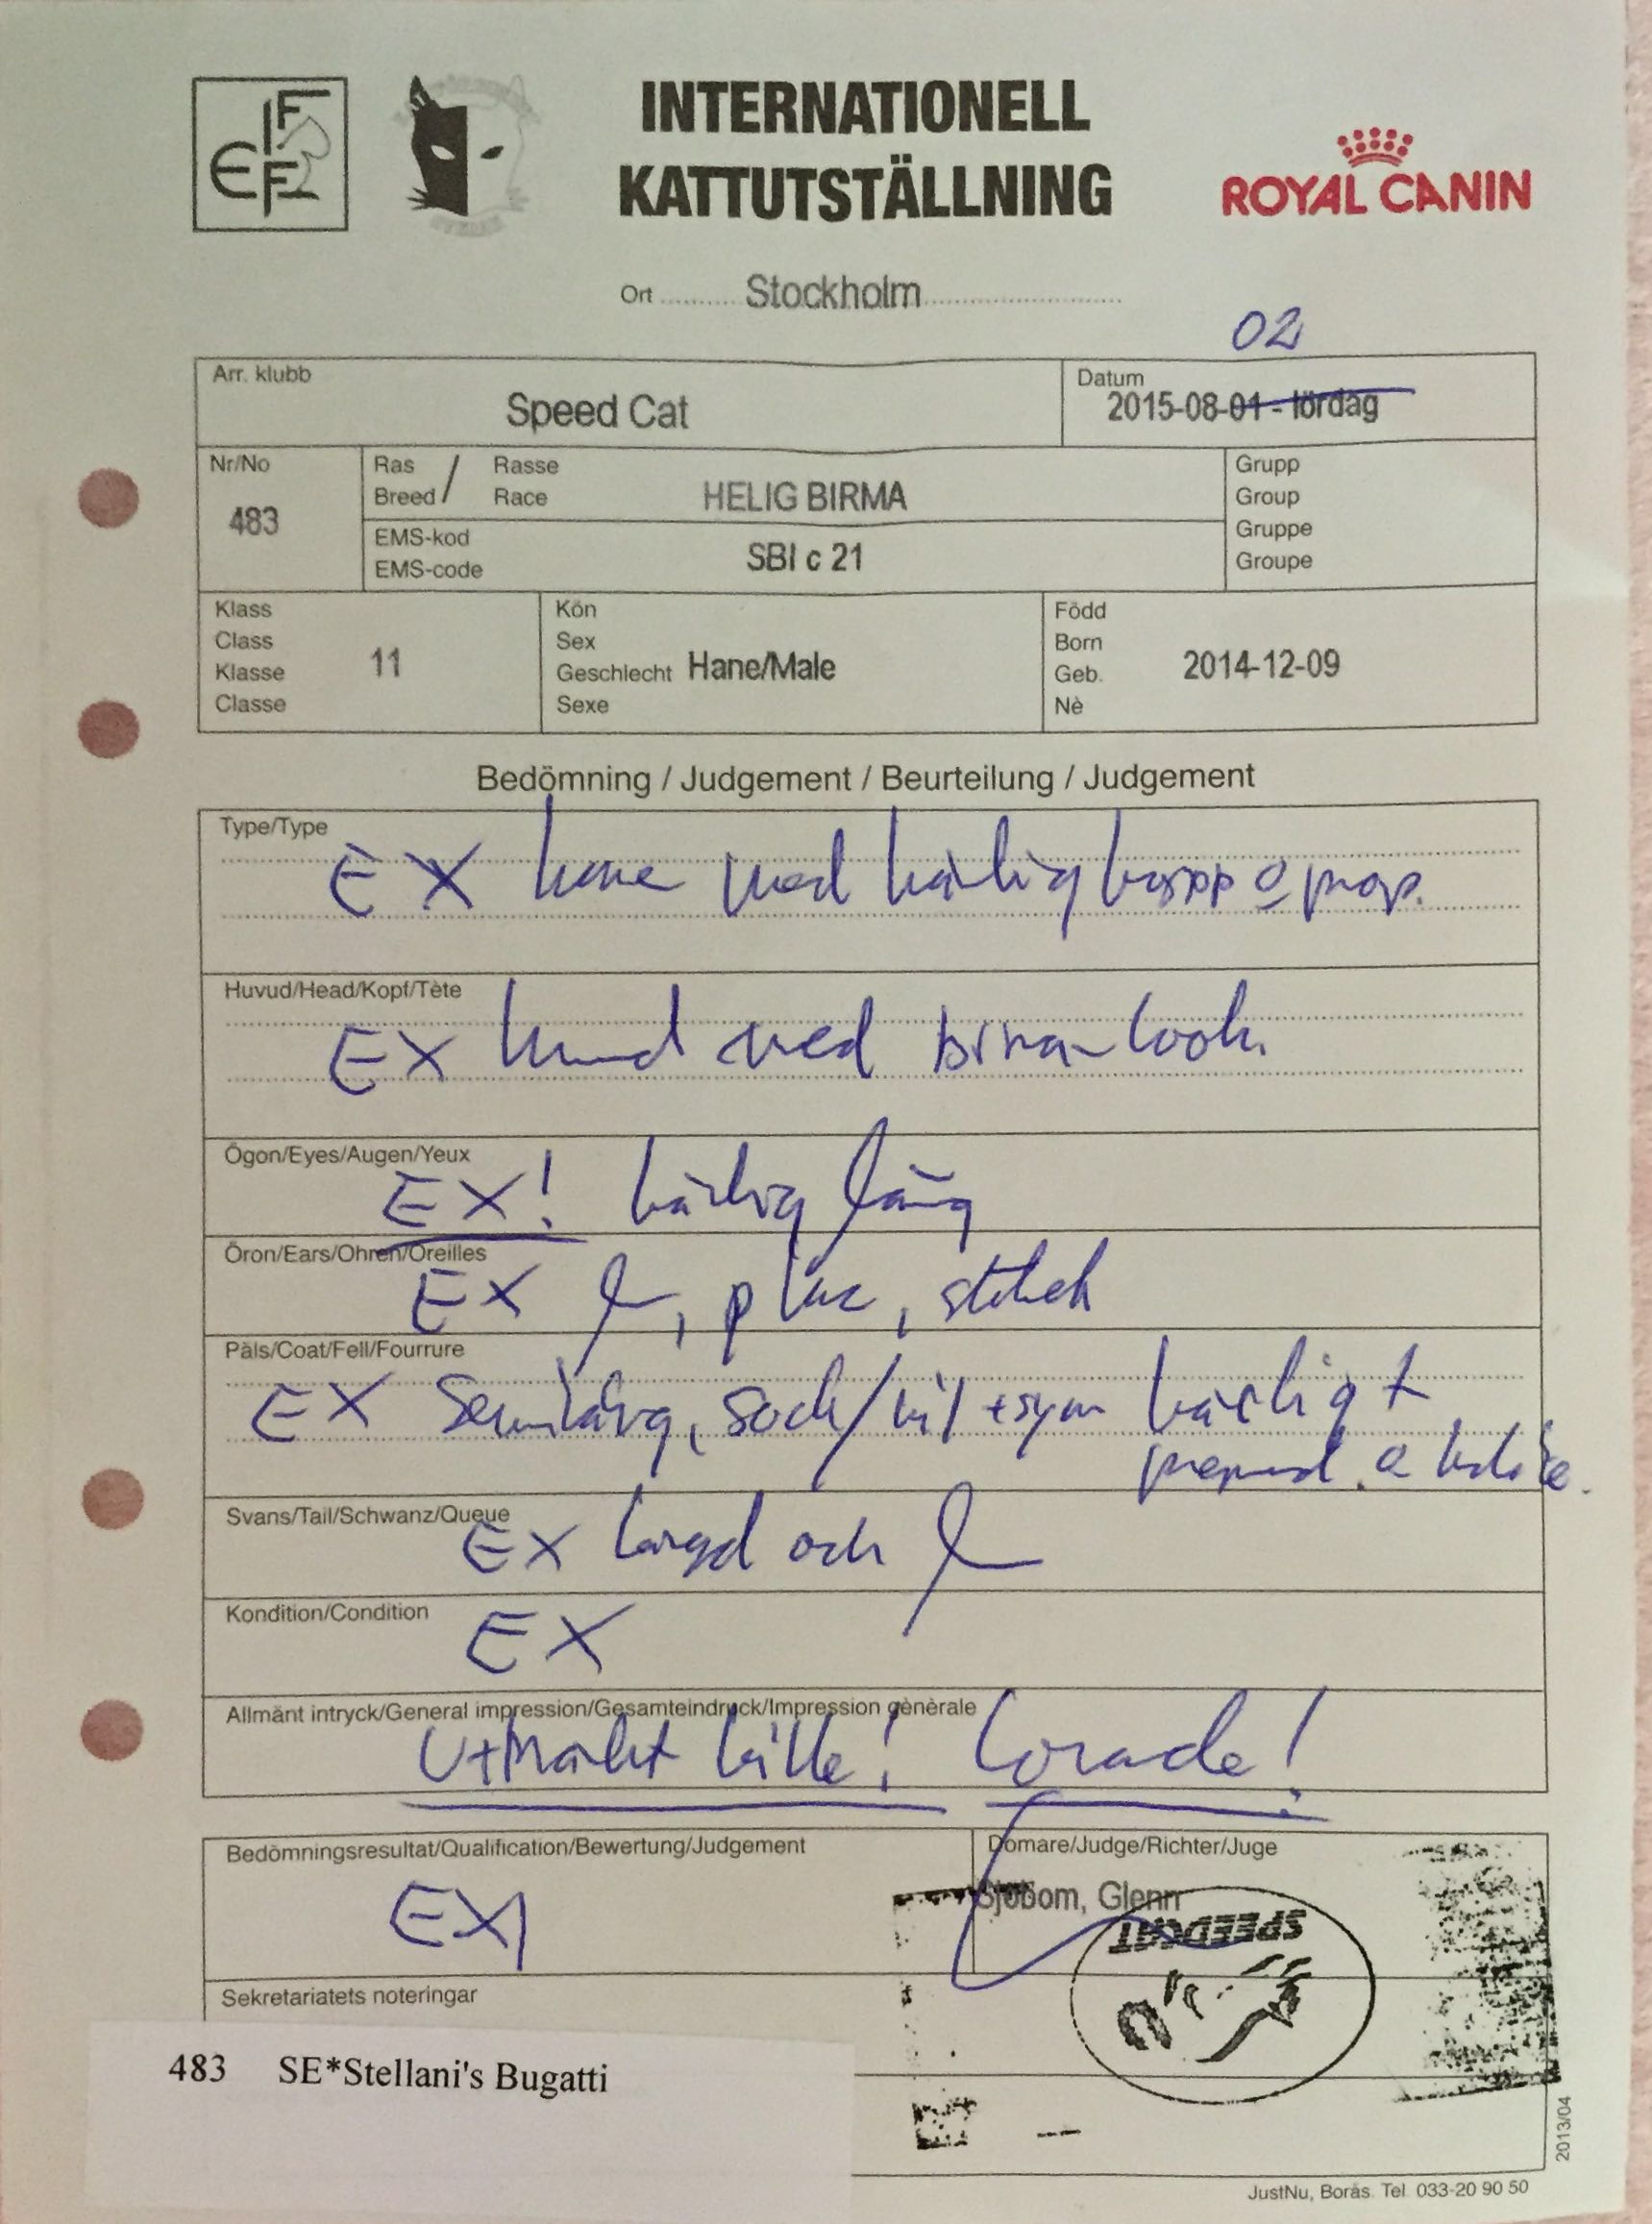 FIFE
INTERNATIONELL
KATTUTSTÄLLNING
ROYAL CANIN
Ort Stockholm
02
Arr. klubb
Speed Cat
Datum
2015-08-01 - lördag
Nr/No
483
Ras / Rasse
Breed Race
HELIG BIRMA
EMS-kod
EMS-code
SBI c 21
Grupp
Group
Gruppe
Groupe
Klass
Class
Klasse
Classe
11
Kön
Sex
Geschlecht Hane/Male
Sexe
Född
Born
Geb.
Nè
2014-12-09
Bedömning / Judgement / Beurteilung / Judgement
Type/Type
EX hane med härlig kropp o prop.
Huvud/Head/Kopf/Tète
EX huvud med birma-look
Ögon/Eyes/Augen/Yeux
EX! härlig färg
Öron/Ears/Ohren/Oreilles
EX plac, storlek
Päls/Coat/Fell/Fourrure
EX härligt
Svans/Tail/Schwanz/Queue
EX längd och
Kondition/Condition
EX
Allmänt intryck/General impression/Gesamteindruck/Impression gènèrale
Utmärkt kille! Lovande!
Bedömningsresultat/Qualification/Bewertung/Judgement
EX1
Domare/Judge/Richter/Juge
Sjöbom, Glenn
SPEEDCAT
Sekretariatets noteringar
483 SE*Stellani's Bugatti
2013/04
JustNu, Borås. Tel 033-20 90 50